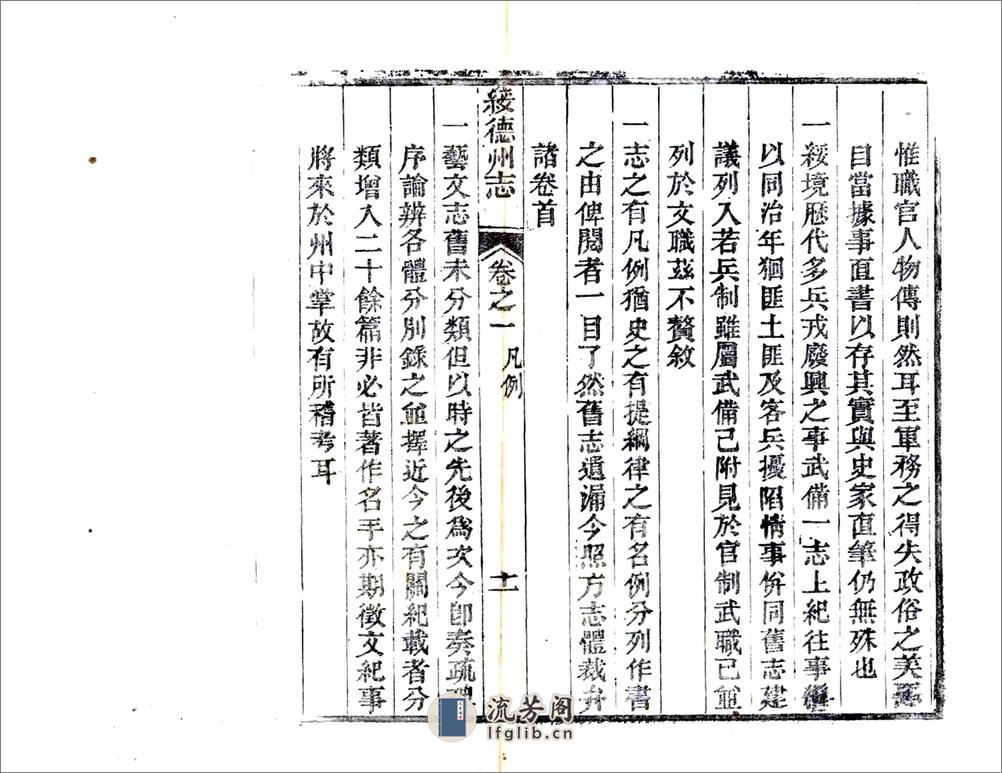 惟職官人物傳則然耳至軍務之得失政俗之美惡
目當據事直書以存其實與史家直筆仍無殊也
一綏境歷代多兵戎廢興之事武備一志上紀往事繼
以同治年猖匪土匪及客兵擾陷情事併同舊志建
議列入若兵制雖屬武備已附見於官制武職已並
列於文職茲不贅敘
一志之有凡例猶史之有提綱律之有名例分列作書
之由俾閱者一目了然舊志遺漏今照方志體裁弁
諸卷首
綏德州志 卷之一 凡例 十一
一藝文志舊未分類但以時之先後為次今卽奏疏碑
序論辨各體分別錄之並擇近今之有關紀載者分
類增入二十餘篇非必皆著作名手亦期徵文紀事
將來於州中掌故有所稽考耳
流芳阁
lfglib.cn